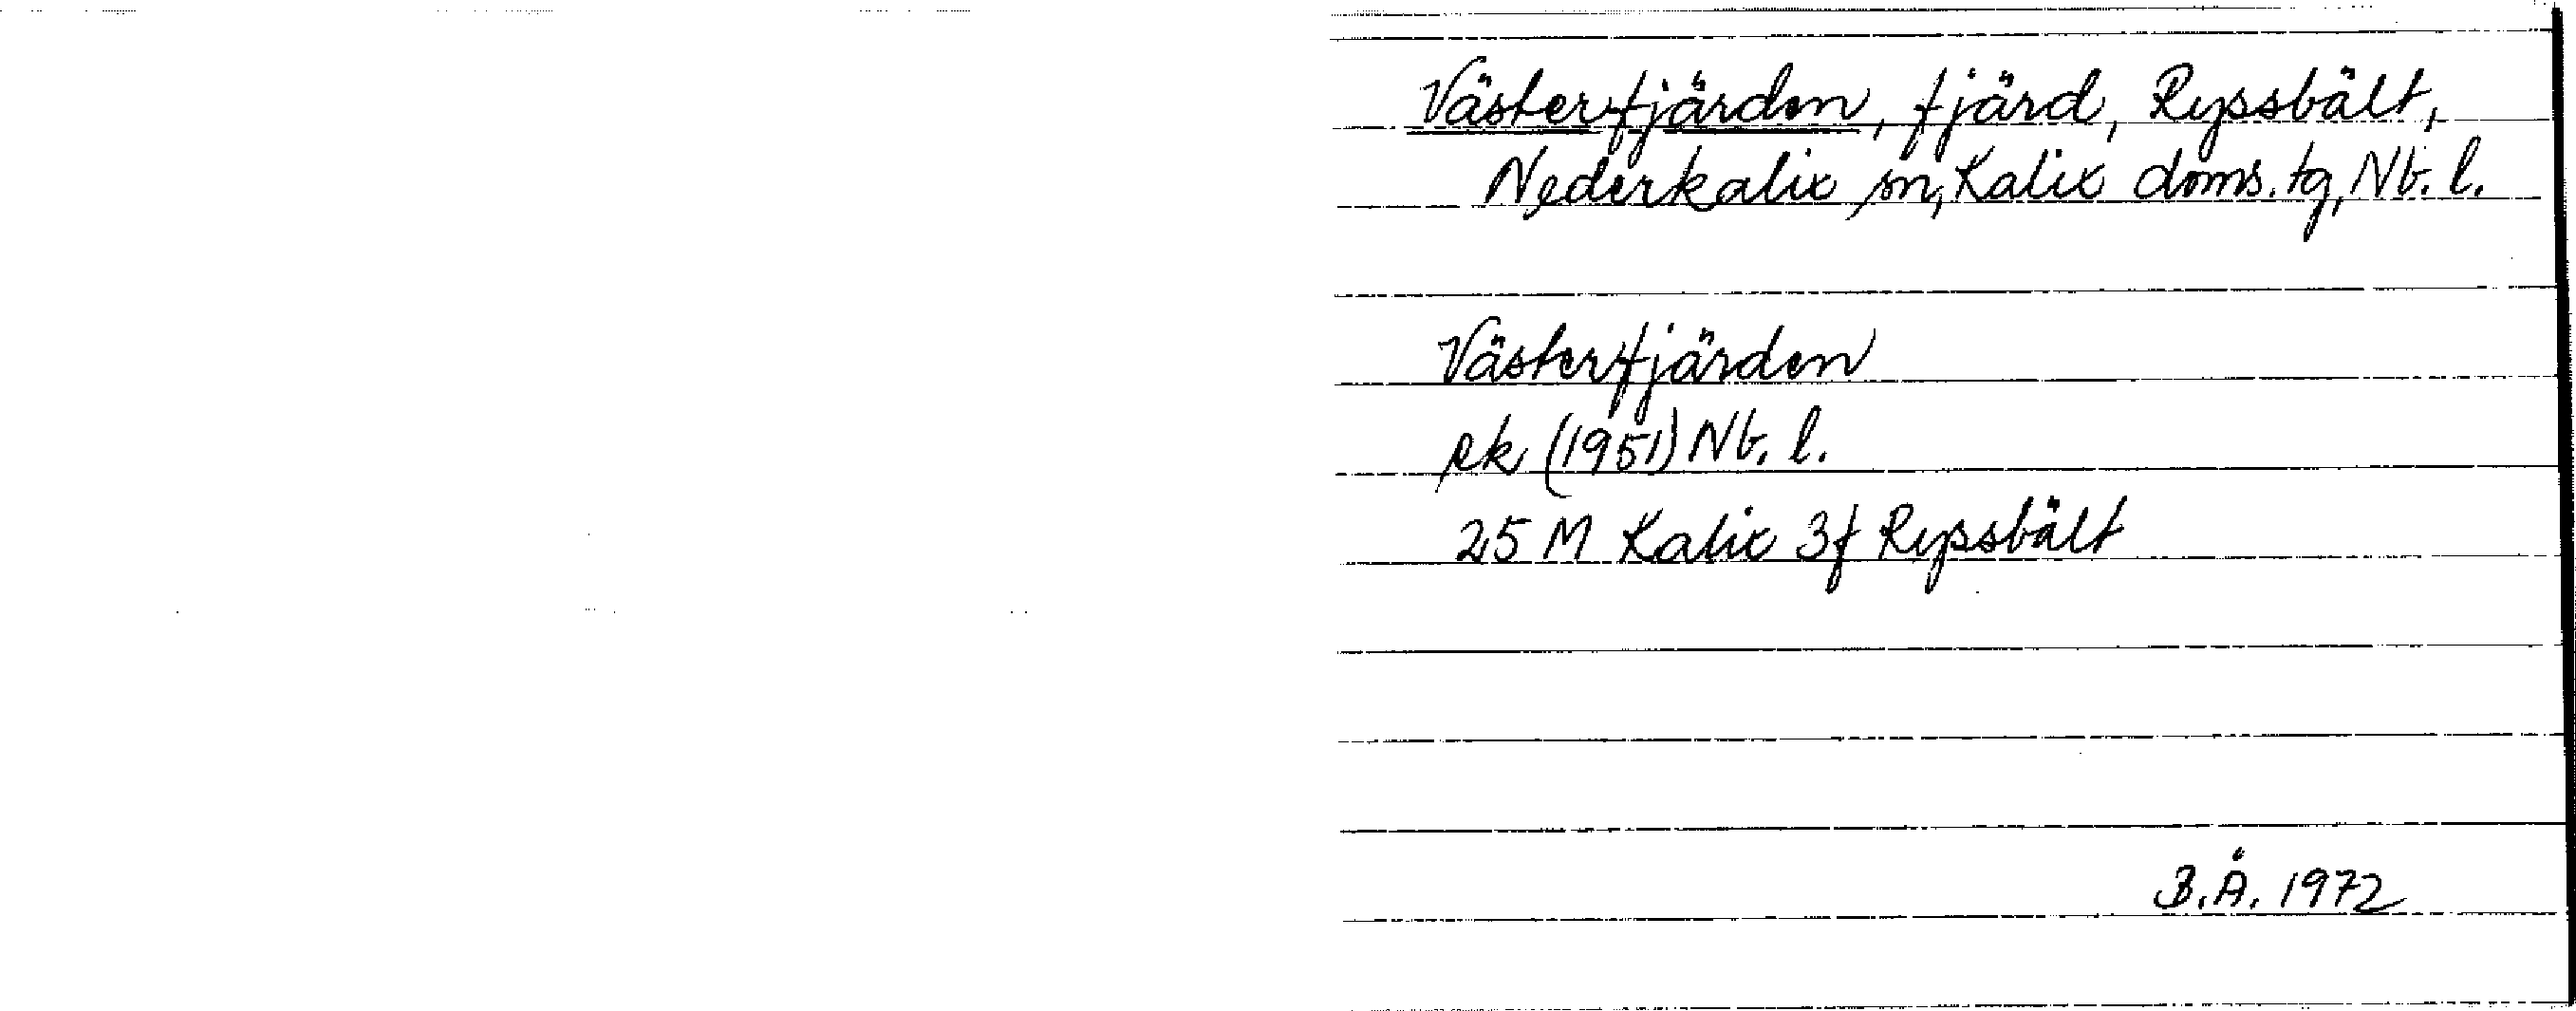 Västerfjärden, fjärd, Ryssbält,
Nederkalix sn, Kalix doms. tg, Nb. l.
Västerfjärden
ek (1951) Nb. l.
25 M Kalix 3f Ryssbält
B.Å. 1972